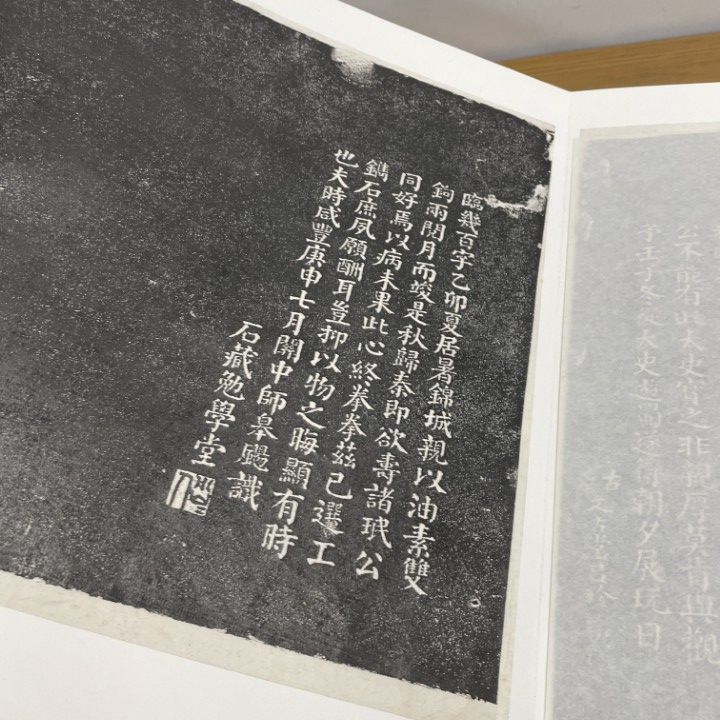 公不能有此太史寶之非莫肯與觀
字壬子冬從太史得朝夕展玩日
臨幾百字乙卯夏居暑錦城親以油素雙
鉤兩閱月而竣是秋歸秦即欲壽諸珉公
同好焉以病未果此心終拳拳茲已選工
鐫石庶夙願酬耳豈抑以物之晦顯有時
也夫時咸豐庚申七月關中師皋颺識
石藏勉學堂